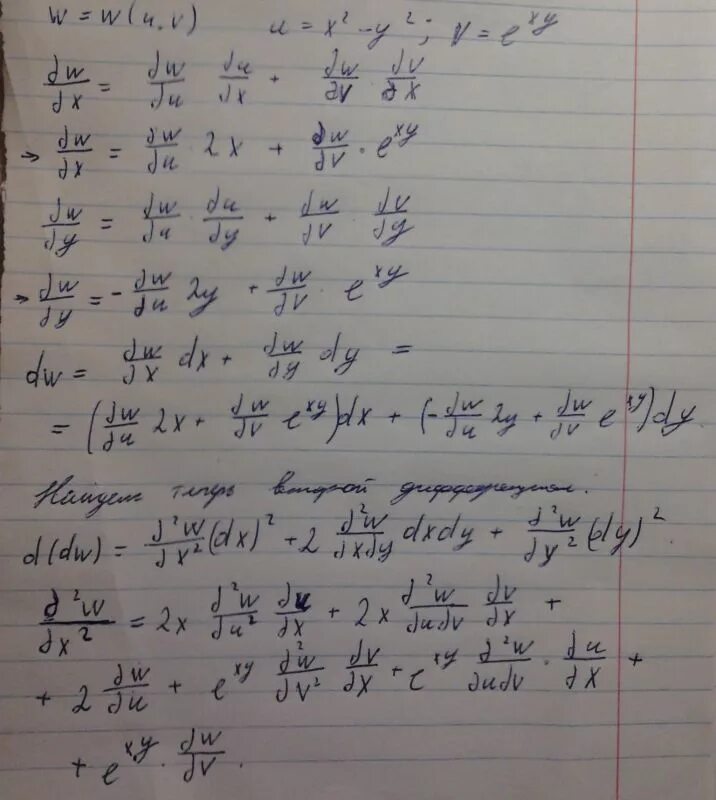 w = w(u,v)   u = x² - y² ; v = e^{xy}
∂w/∂x = ∂w/∂u ∂u/∂x + ∂w/∂v ∂v/∂x
→ ∂w/∂x = ∂w/∂u · 2x + ∂w/∂v · e^{xy}
∂w/∂y = ∂w/∂u · ∂u/∂y + ∂w/∂v ∂v/∂y
→ ∂w/∂y = - ∂w/∂u 2y + ∂w/∂v · e^{xy}
dw = ∂w/∂x dx + ∂w/∂y dy =
= (∂w/∂u 2x + ∂w/∂v e^{xy})dx + (-∂w/∂u 2y + ∂w/∂v e^{xy})dy.
Найдем теперь второй дифференциал.
d(dw) = ∂²w/∂x² (dx)² + 2 ∂²w/∂x∂y dxdy + ∂²w/∂y² (dy)²
∂²w/∂x² = 2x ∂²w/∂u² ∂u/∂x + 2x ∂²w/∂u∂v ∂v/∂x +
+ 2 ∂w/∂u + e^{xy} ∂²w/∂v² ∂v/∂x + e^{xy} ∂²w/∂u∂v · ∂u/∂x +
+ e^{xy} · ∂w/∂v.